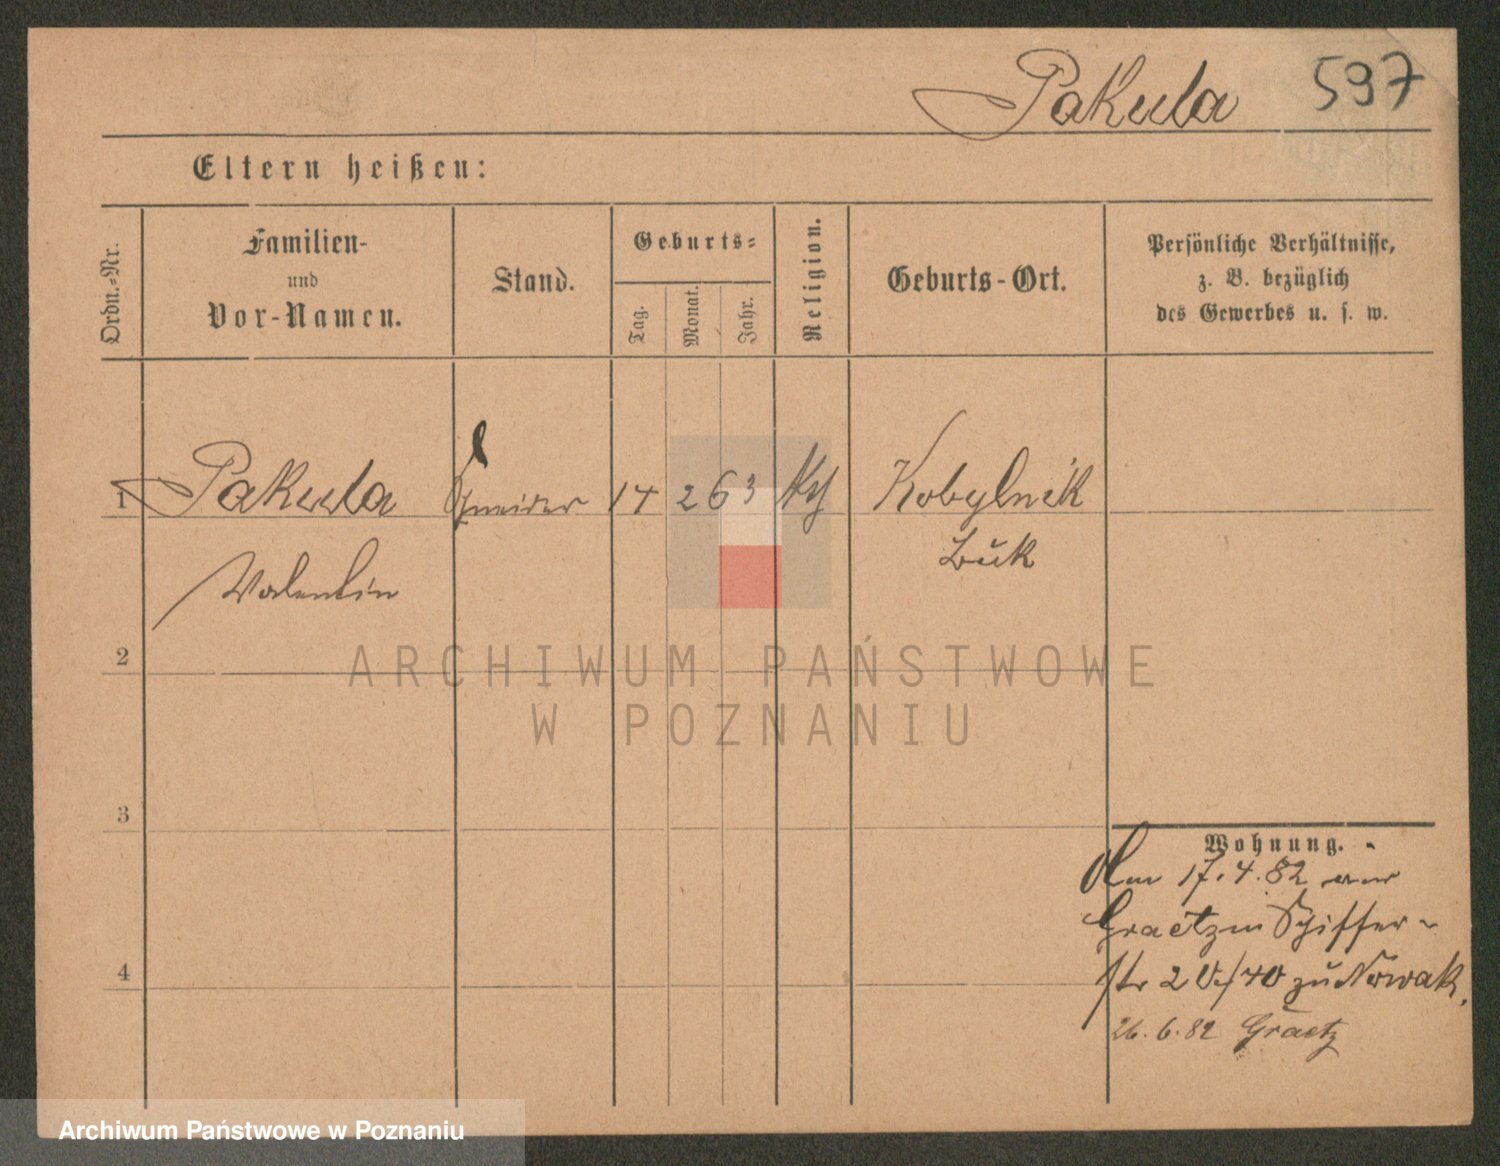 Pakula 597
Eltern heißen:
Ordn.-Nr.
Familien-
und
Vor-Namen.
Stand.
Geburts-
Tag.
Monat.
Jahr.
Religion.
Geburts-Ort.
Persönliche Verhältnisse,
z. B. bezüglich
des Gewerbes u. s. w.
1 Pakula Schneider 14 2 63 Kth Kobylnik
Valentin Buk
2
3
4
Wohnung.
Am 17.4.82 aus
Graetz in Schiffer-
str 20/ zu Nowak.
26.6.82 Graetz
ARCHIWUM PAŃSTWOWE
W POZNANIU
Archiwum Państwowe w Poznaniu